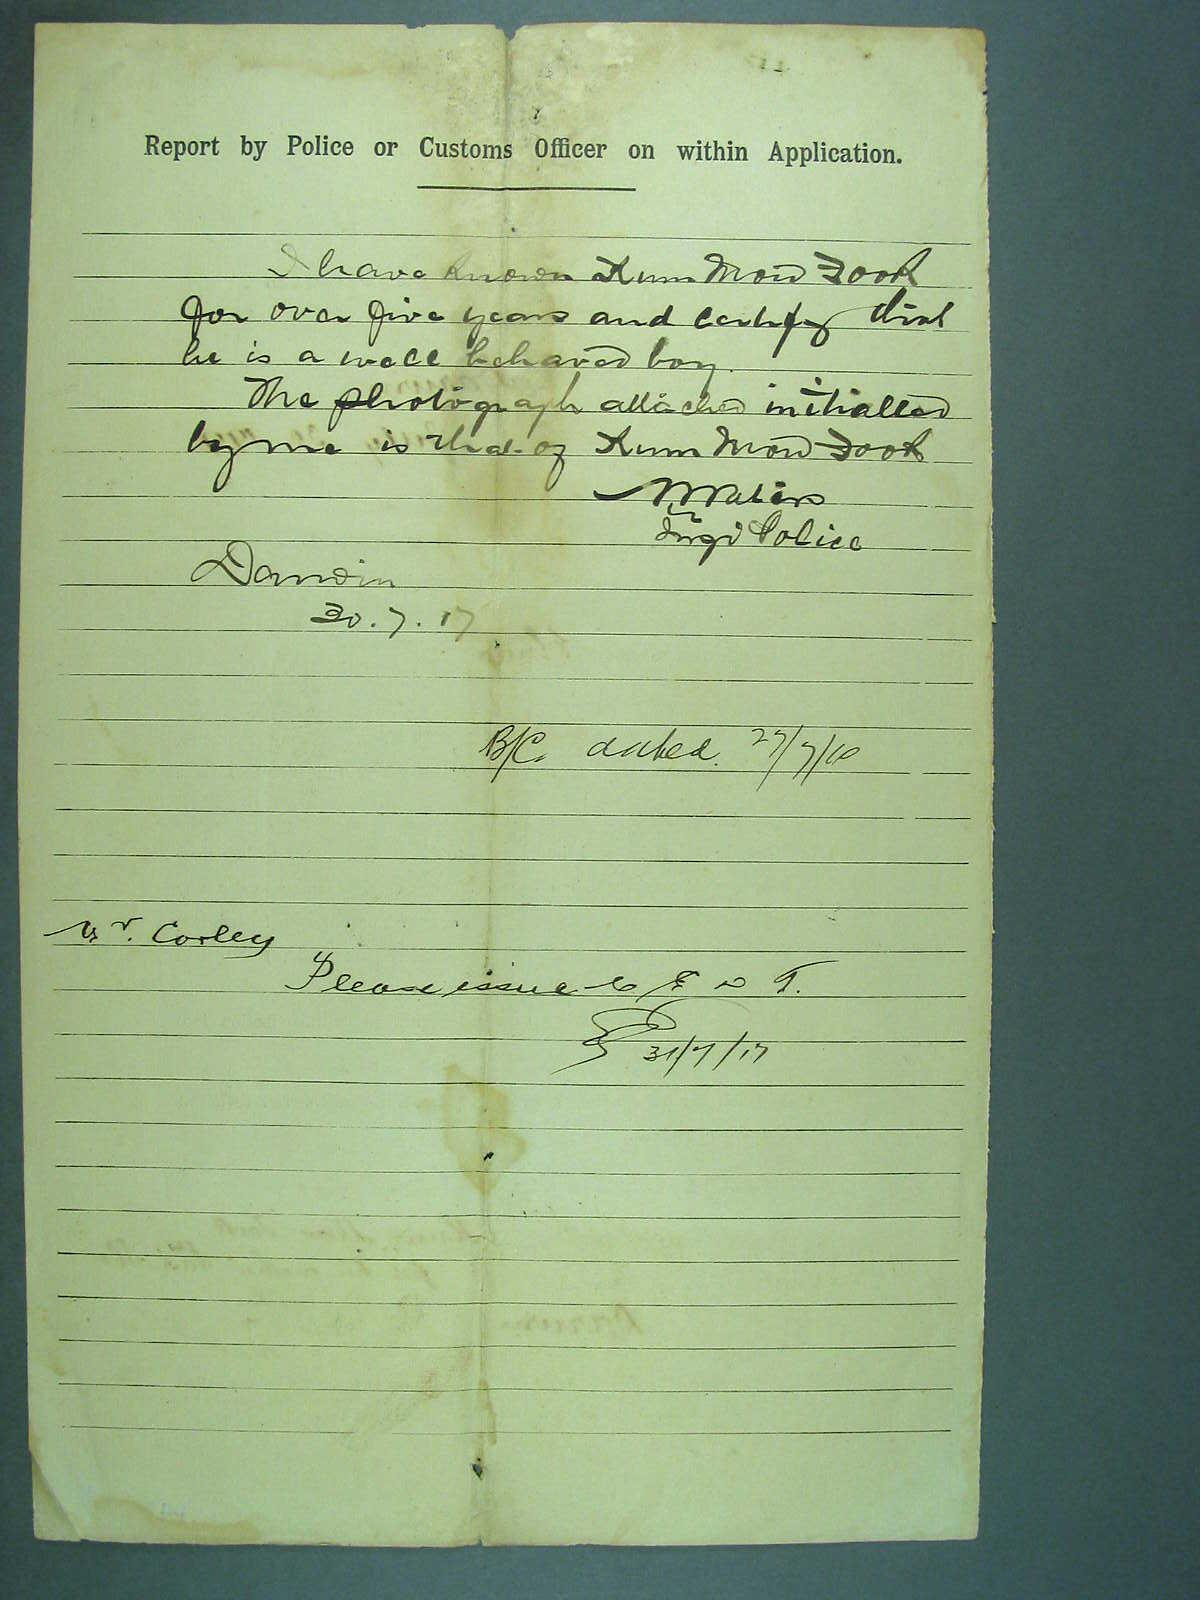 Report by Police or Customs Officer on within Application.
I have known Kum Mow Fook
for over five years and certify that
he is a well behaved boy.
The photograph attached initialled
by me is that of Kum Mow Fook
N Waters
Insp Police
Darwin
30.7.17
B/C. dated. 27/7/10
Mr. Corley
Please issue to
31/7/17